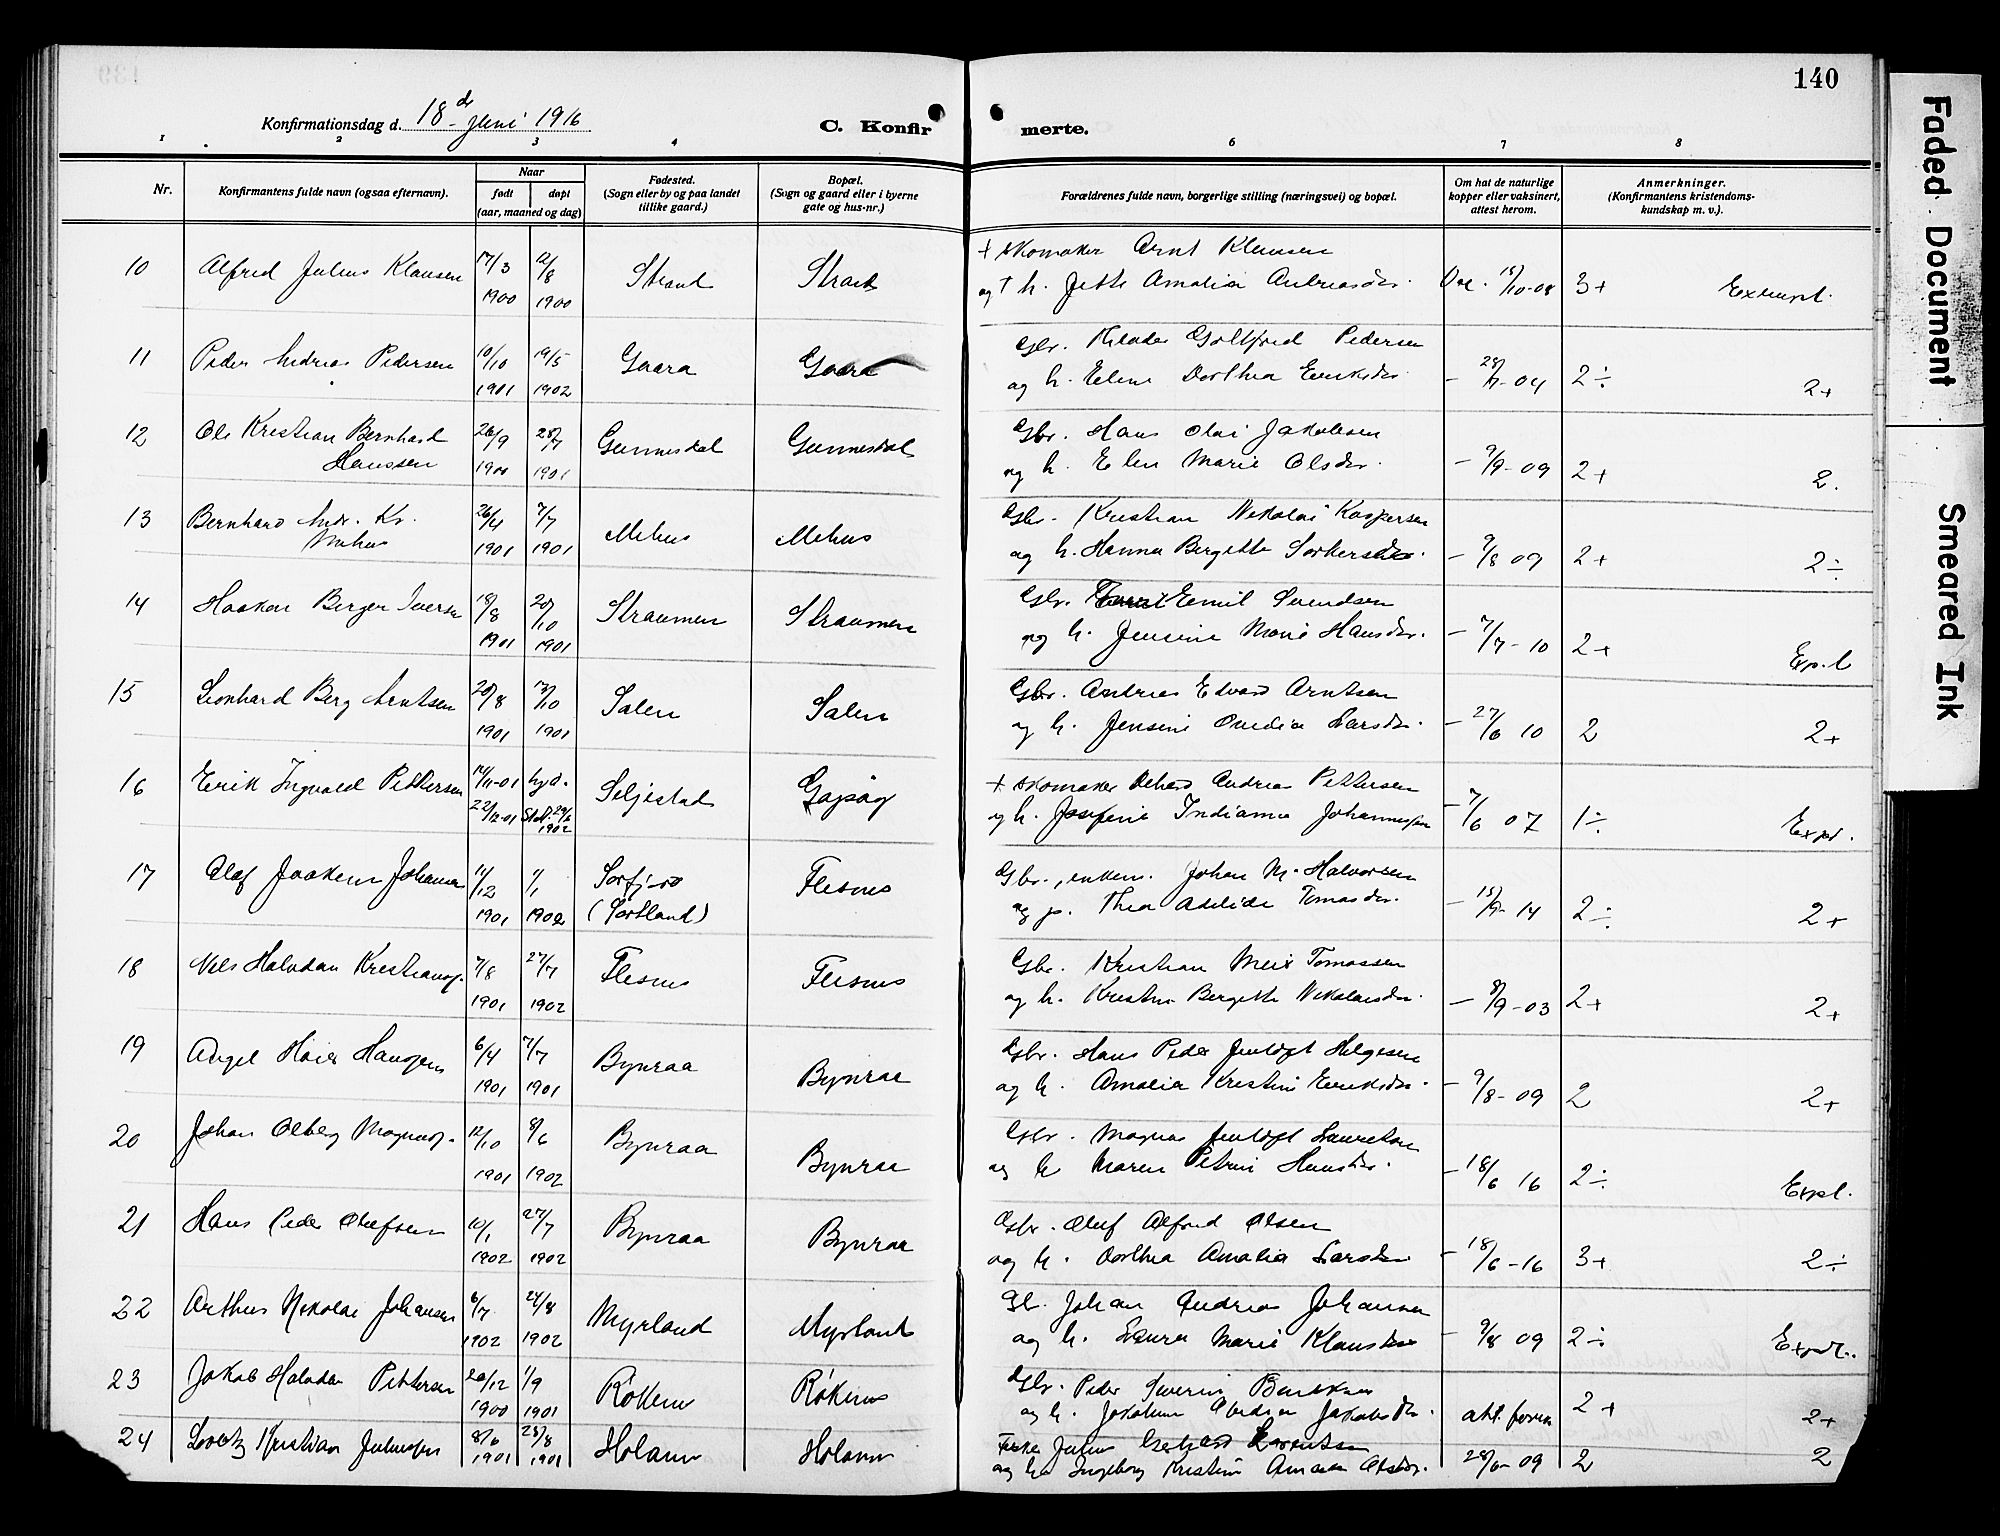 140
Konfirmationsdag d. 18de Juni 1916
C. Konfir merte.
1 2 3 4 6 7 8
Nr.
Konfirmantens fulde navn (ogsaa efternavn).
Naar
født døpt
(aar, maaned og dag)
Fødested.
(Sogn eller by og paa landet
tillike gaard.)
Bopæl.
(Sogn og gaard eller i byerne
gate og hus-nr.)
Forældrenes fulde navn, borgerlige stilling (næringsvei) og bopæl.
Om hat de naturlige
kopper eller vaksinert,
attest herom.
Anmerkninger.
(Konfirmantens kristendoms-
kundskap m. v.).
10 Alfred Julius Klausen 17/3 1900 12/8 1900 Strand Strand
+ Skomaker Arnt Klausen
og + h. Jette Amalia Andreasdr. Vac. 15/10-08 3+ Exempl.
11 Peder Andreas Pedersen 10/10 1901 19/5 1902 Gaara Gaara
Gbr. Gottfred Pedersen
og h. Eline Dorthea Eriksdr. - 28/7-04 2÷ 2+
12 Ole Kristian Bernhard
Hanssen 26/9 1900 28/7 1901 Gunnesdal Gunnesdal
Gbr. Hans Olai Jakobsen
og h. Elen Marie Olsdr. - 9/9-09 2+ 2.
13 Bernhard Andr. Kr.
Mehus 26/4 1901 7/7 1901 Mehus Mehus
Gbr. Kristian Nikolai Kaspersen
og h. Hanna Bergitte - 9/8 09 2+ 2÷
14 Haakon Berger Iversen 19/8 1901 20/10 1901 Straumen Straumen
Gbr. Emil Svendsen
og h. Jensine Marie Hansdr. - 7/7-10 2+ Exp.l
15 Leonhard Berg Arntsen 20/8 1901 13/10 1901 Salen Salen
Gbr. Andreas Edvard Arntsen
og h. Jensine Ovedia Larsdr. - 27/6 10 2 2+
16 Erik Ingvald Pettersen 14/11-01 hjd. 22/12-01 Stad. 29/6 1902 Seljestad Gapøy
+ Skomaker Andreas Pettersen
og h. Josefine Indianna Johannessen - 7/6 07 1÷ Expl.
17 Olaf Joakim Johansen 11/12 1901 1/1 1902 Sørfjord
(Sortland) Flesnes
Gbr., enkem. Johan M. Halvorsen
og p. Thea Adelide Tomasdr. - 15/7-14 2÷ 2+
18 Nils Halvdan Kristiansen 7/8 1901 27/7 1902 Flesnes Flesnes
Gbr. Kristian Meier Tomassen
og h. Kristine Bergitte Nikolaisdr. - 8/9-03 2+ 2+
19 Angel Høier Hanssen 6/4 1901 7/7 1901 Bynraa Bynraa
Gbr. Hans Peder Jentoft Helgesen
og h. Amalia Kristine Eriksdr. - 9/8-09 2 2+
20 Johan Olberg Magnus. 12/10 1901 8/6 1902 Bynraa Bynraa
Gbr. Magnus Jentoft Lauretsen
og h Maren Petrine Hansdr. - 18/6 16 2÷ Expl.
21 Hans Peder Olufsen 10/1 1902 27/7 1902 Bynraa Bynraa
Gbr. Oluf Alfred Olsen
og h. Dorthea Amalia Larsdr - 18/6-16 3+ 2÷
22 Arthur Nikolai Johansen 6/7 1902 24/8 1902 Myrland Myrland
Gb. Johan Andreas Johansen
og h. Laura Marie Klausdr - 9/8 09 2÷ Expl.
23 Jakob Halvdan Pettersen 20/12 1900 1/9 1901 Røkenes Røkenes
Gbr. Peder Severin
og h. Jakobine Jakobsdr. att. forev. 2+ 2+
24 Lorentz Kristian Juliussen 8/6 1901 28/8 1901 Holand Holand
Julius Gerhard Lorentsen
og h. Ingeborg Kristine Olsdr. 28/6-09 2 2
Faded Document
Smeared Ink